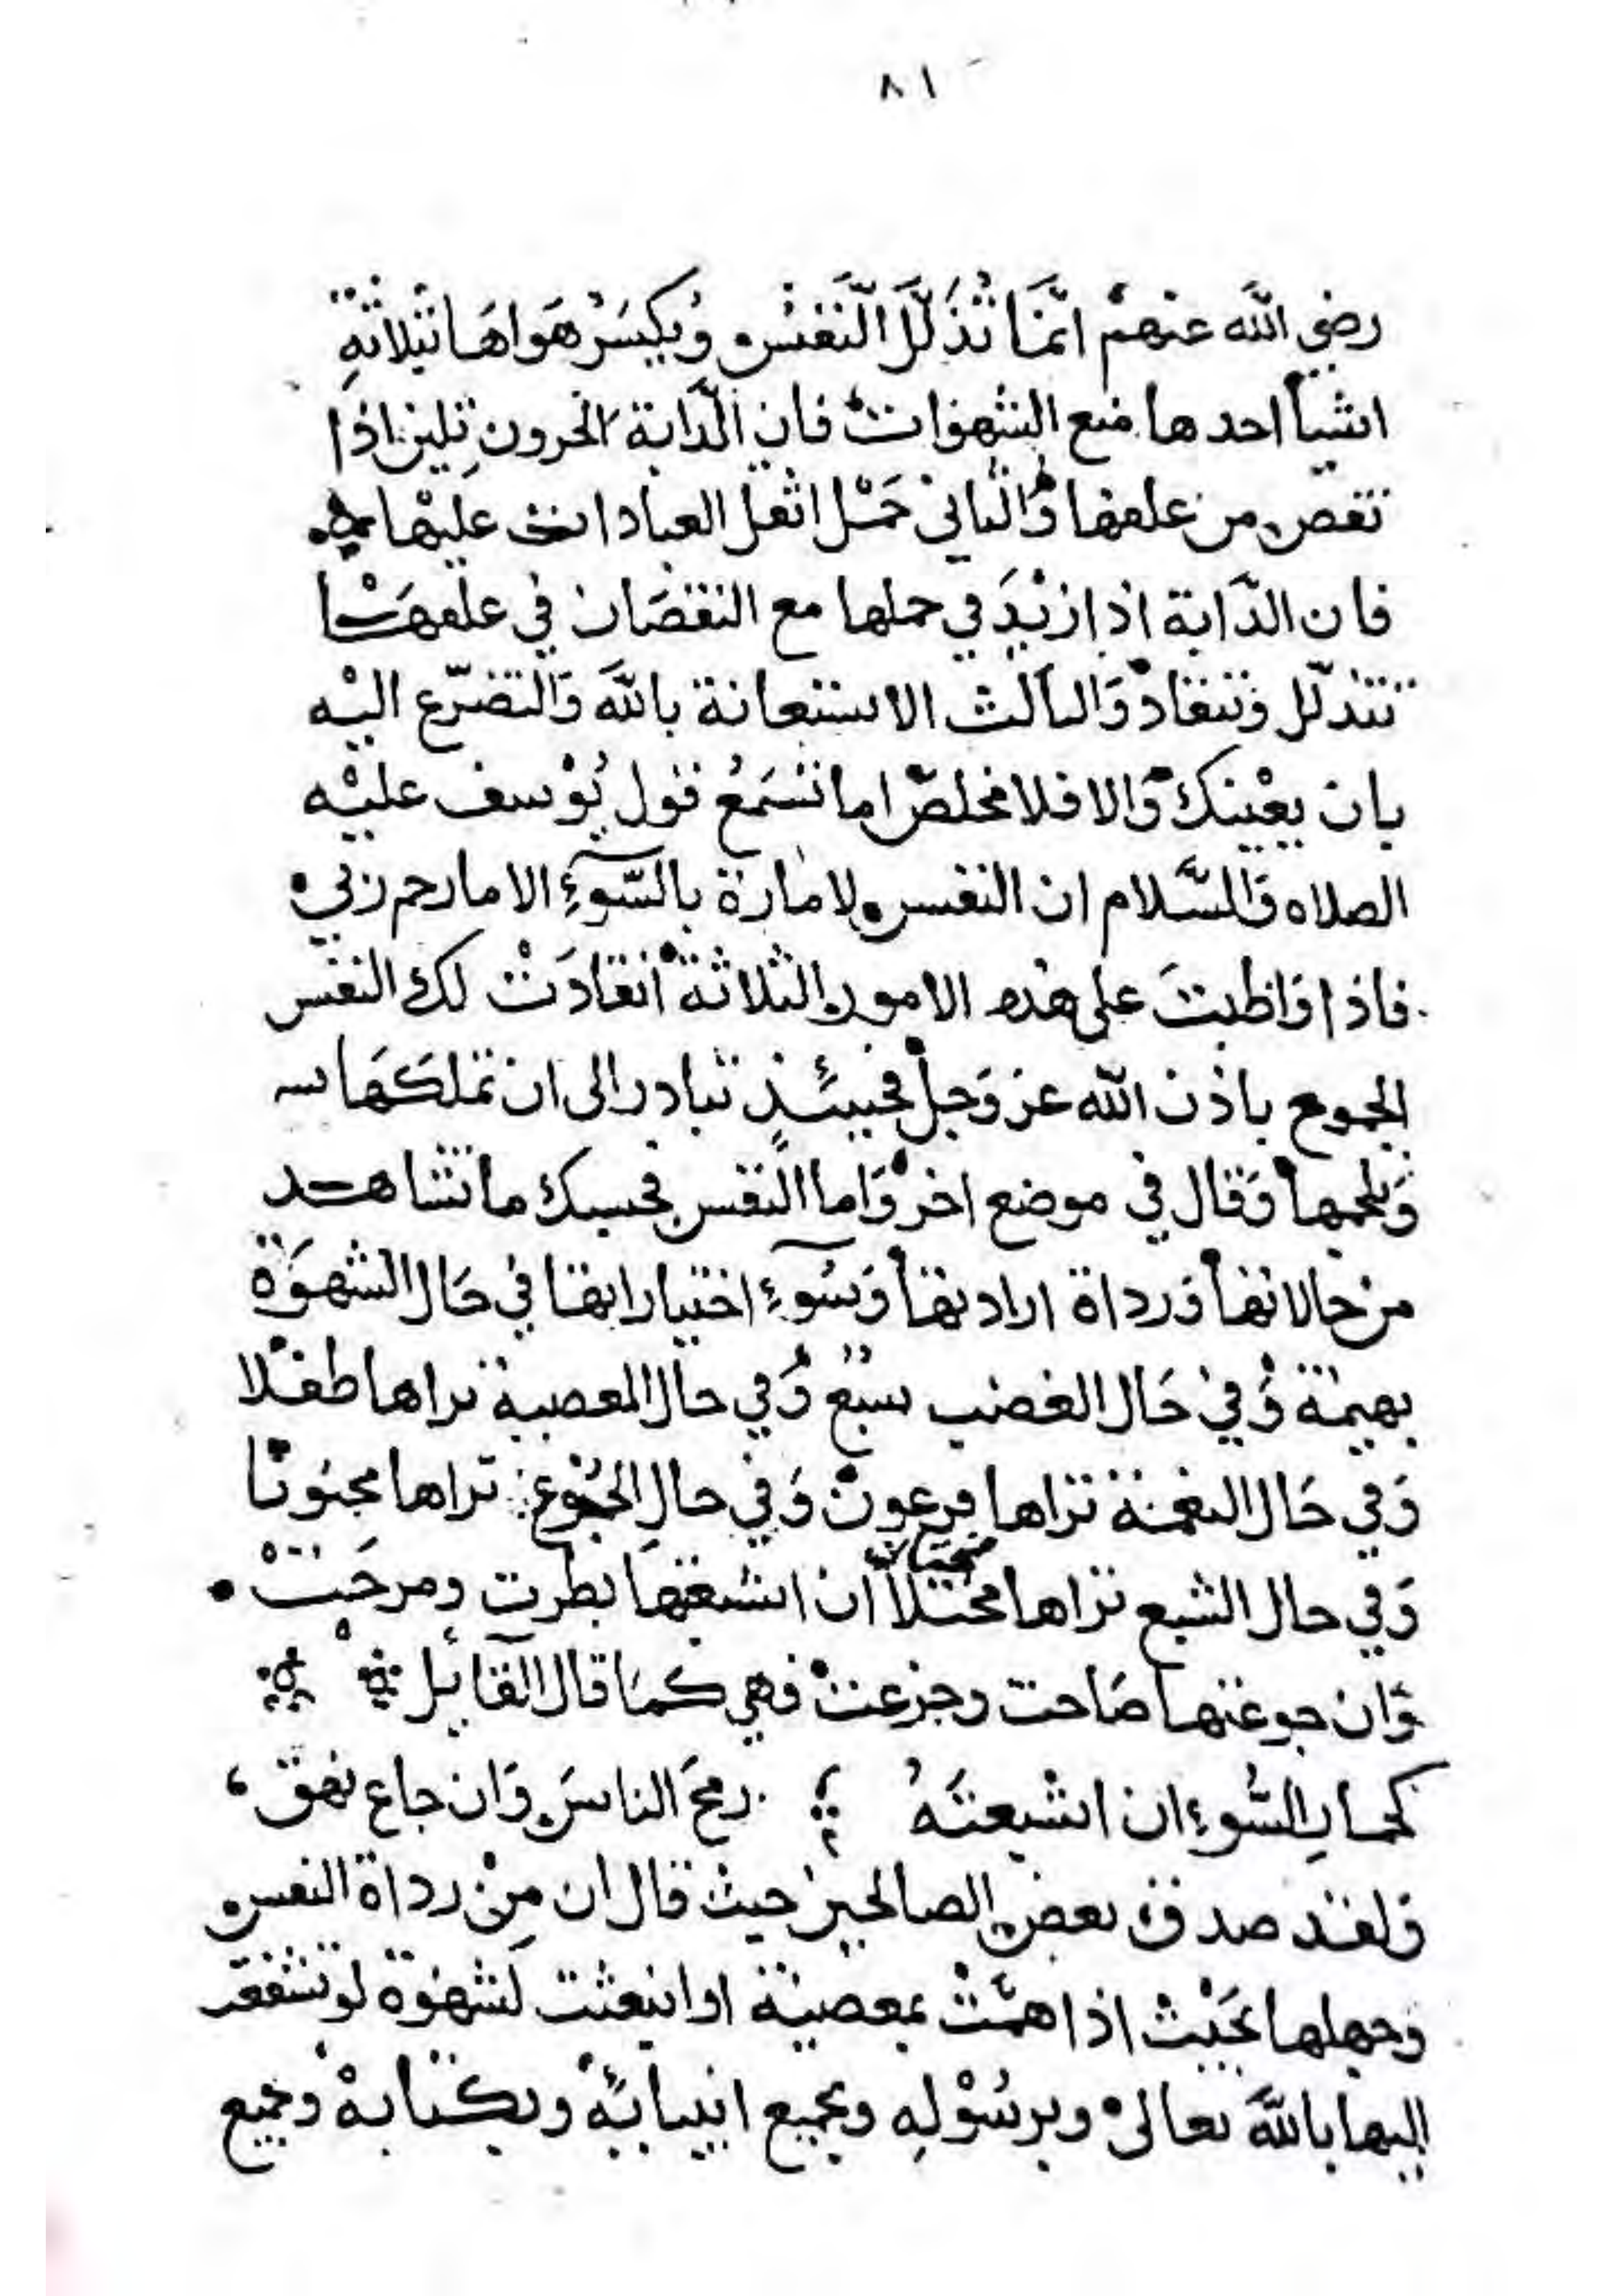 ٨١
رضي الله عنهم انَّمَا تُذَلَّلُ النَّفْسُ وَيُكْسَرُ هَوَاهَا بثلاثةِ
اشيآ احدها منع الشهوات فان الدَّابة الحرون تلين اذا
نقص من علفها وَالثاني حَمْل اثقل العبادات عليها
فان الدَّابة اذا زيْدَ في حملها مع النقصَان في علفهَا
تتذلّل وَتنقاد وَالثالث الاستعانة بالله وَالتضرّع اليْه
بان يعْينك وَالا فلا مخلصَ اما تسْمَعُ قول يُوْسف عليْه
الصلاه وَالسَّلام ان النفس لامارة بالسّوءِ الا ما رحم ربي
فاذا وَاظبتَ على هذه الامور الثلاثة انقادَتْ لك النفس
الجموع باذن الله عز وَجل فحينئذٍ تبادر الى ان تملكَهَا
وَتلجمها وَقال في موضع اخر وَاما النفس فحسبك ما تشاهد
من حالاتها وَرداة ارادتها وَسُوءِ اختيارابها في حَال الشهوَة
بهيمة وَفي حَال الغضب سبع وَفي حال المعصية تراها طفلا
وَفي حَال النعمة تراها فرعون وَفي حالِ الجُوْع تراها مجنونا
وَفي حال الشبع تراها مختلاً ان اشبعتها بطرت ومرحَتْ
وَان جوعتها صَاحت وجزعت فهي كمَا قال القائِل
كحمارِ السُّوءِ ان اشبعتَهُ رمحَ الناسَ وَان جاع نهق
وَلقد صدق بعض الصالحين حيث قال ان مِنْ رداة النفس
وجهلها بحَيْث اذا همَّتْ بمعصية او انبعثت لشهوة لو تشفعت
اليها بالله تعالى وبرسُوْلِه وبجميع انبيائه وبكتابه وبجميع